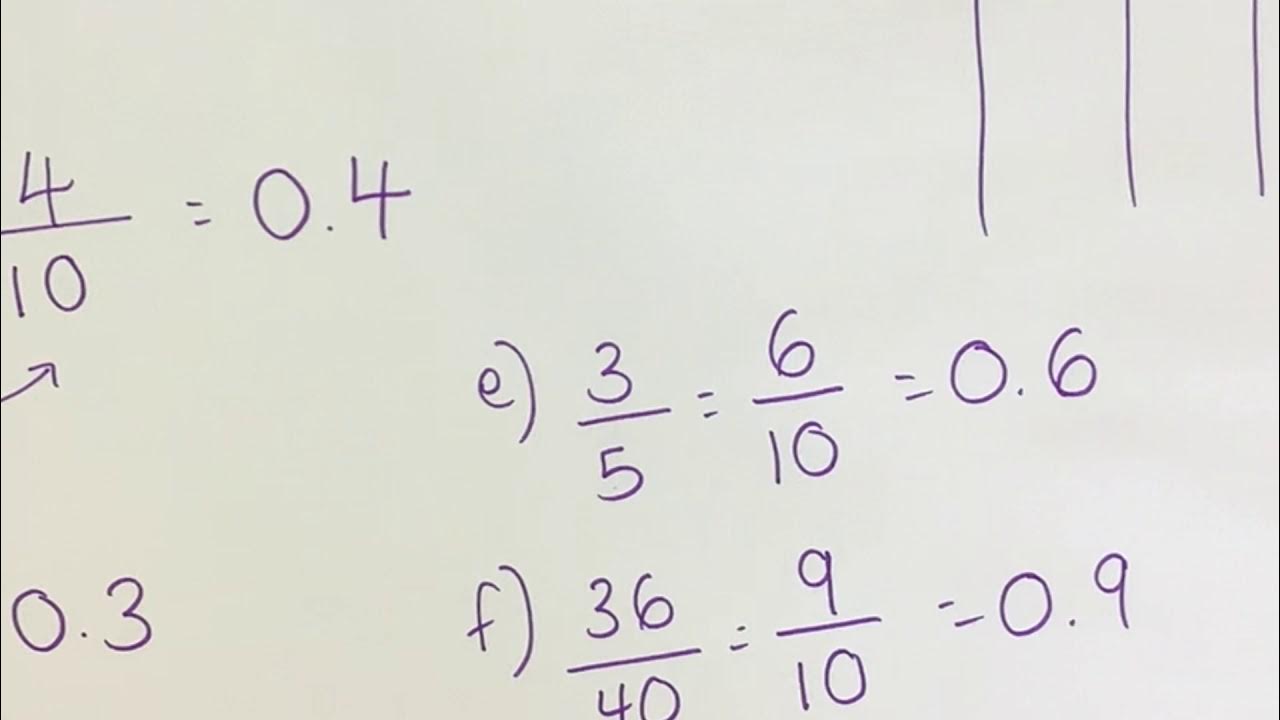 4/10 = 0.4
e) 3/5 = 6/10 = 0.6
0.3
f) 36/40 = 9/10 = 0.9